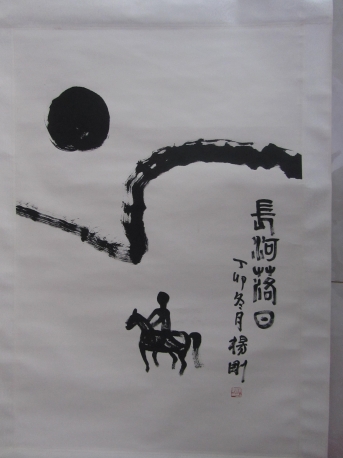 長河落日
丁卯冬月楊剛